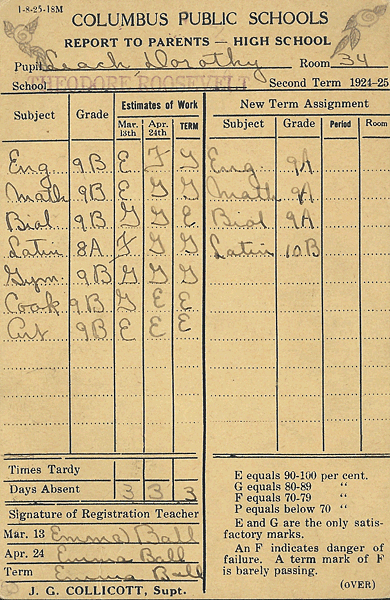 1-8-25-18M
COLUMBUS PUBLIC SCHOOLS
REPORT TO PARENTS — HIGH SCHOOL
Pupil Leach, Dorothy Room 34
School THEODORE ROOSEVELT Second Term 1924-25
Subject Grade Estimates of Work Mar. 13th Apr. 24th TERM
Eng 9B E F G
Math 9B E G G
Biol 9B G G E
Latin 8A F G G
Gym 9B G G G
Cook 9B G E E
Art 9B E E E
Times Tardy
Days Absent 3 3 3
Signature of Registration Teacher
Mar. 13 Emma Ball
Apr. 24 Emma Ball
Term Emma Ball
J. G. COLLICOTT, Supt.
New Term Assignment
Subject Grade Period Room
Eng 9A
Math 9A
Biol 9A
Latin 10B
E equals 90-100 per cent.
G equals 80-89 “
F equals 70-79 “
P equals below 70 “
E and G are the only satis-
factory marks.
An F indicates danger of
failure. A term mark of F
is barely passing.
(OVER)